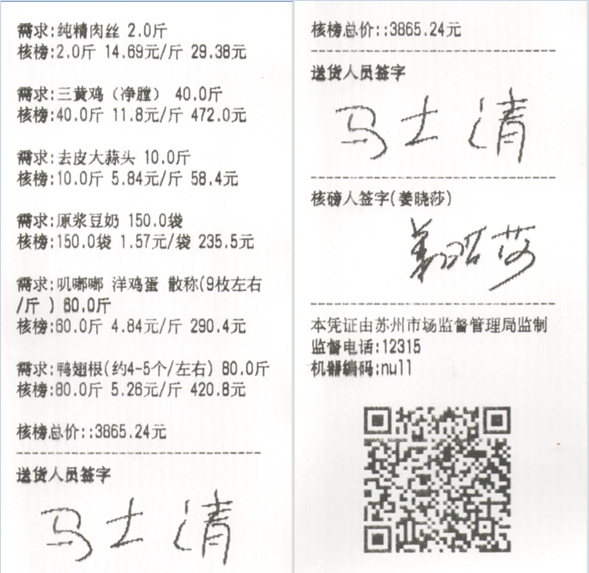 需求:纯精肉丝 2.0斤
核榜:2.0斤 14.69元/斤 29.38元
需求:三黄鸡（净膛） 40.0斤
核榜:40.0斤 11.8元/斤 472.0元
需求:去皮大蒜头 10.0斤
核榜:10.0斤 5.84元/斤 58.4元
需求:原浆豆奶 150.0袋
核榜:150.0袋 1.57元/袋 235.5元
需求:叽嘟嘟 洋鸡蛋 散称(9枚左右
/斤 ) 60.0斤
核榜:60.0斤 4.84元/斤 290.4元
需求:鸭翅根(约4-5个/左右) 80.0斤
核榜:80.0斤 5.26元/斤 420.8元
核榜总价::3865.24元
送货人员签字
马士清
核榜总价::3865.24元
送货人员签字
马士清
核磅人签字(姜晓莎)
姜晓莎
本凭证由苏州市场监督管理局监制
监督电话:12315
机器编码:null